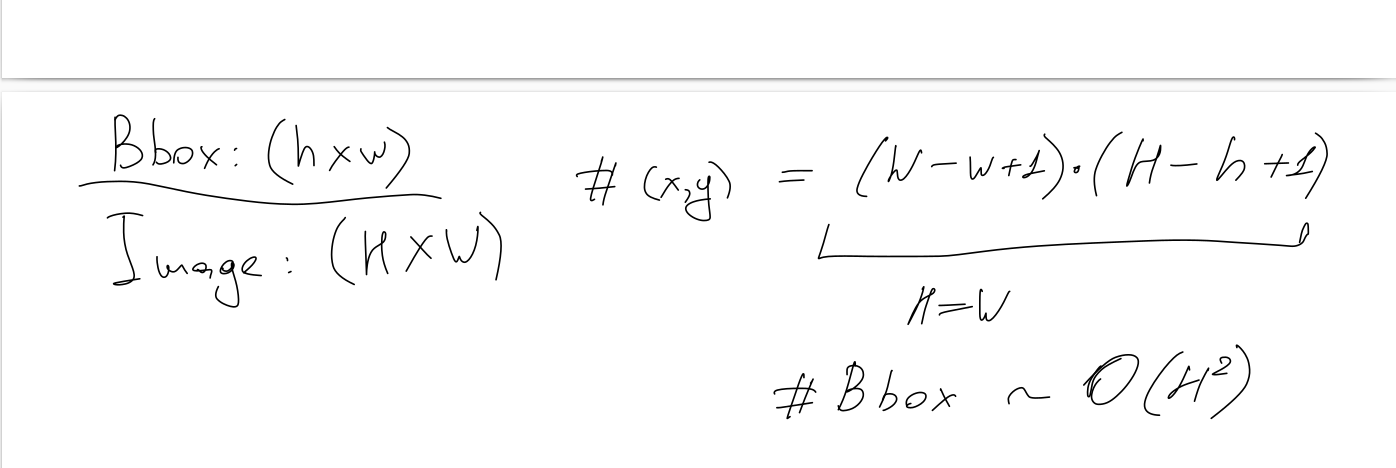 Bbox: (h x w)
Image: (H x W)
# (x,y) = (W - w + 1) · (H - h + 1)
H = W
# Bbox ~ O(H²)